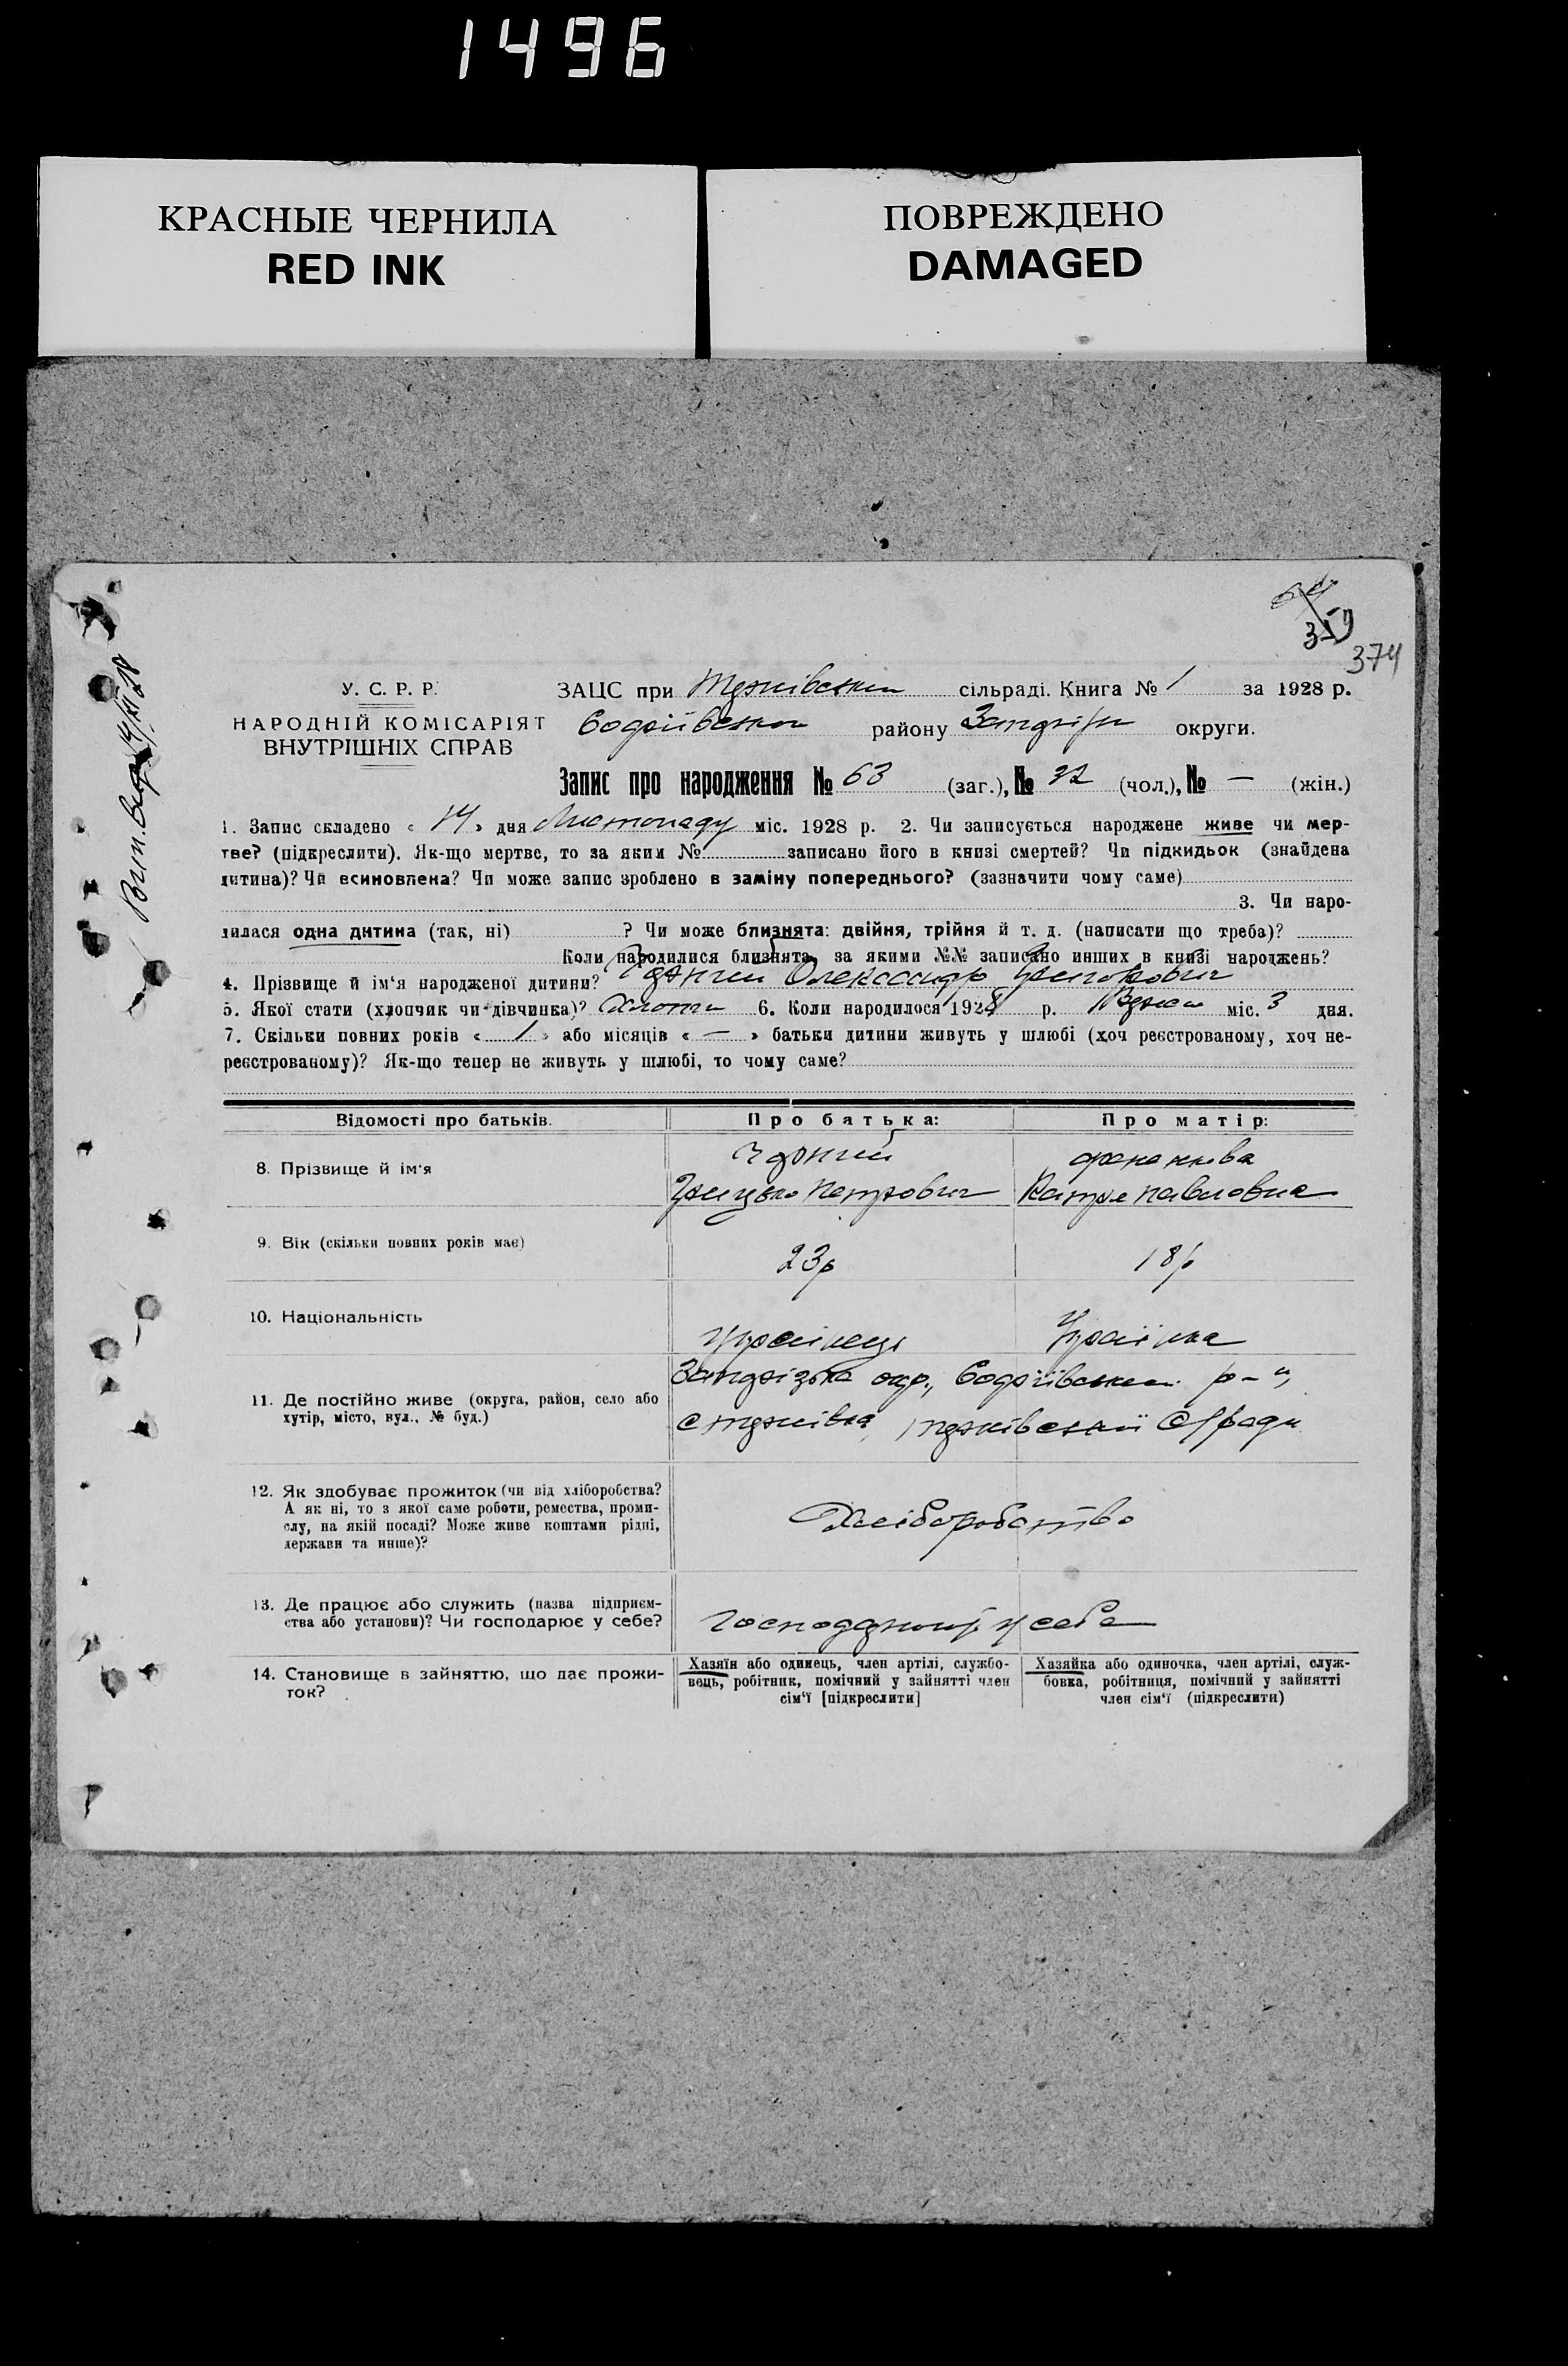 1496
КРАСНЫЕ ЧЕРНИЛА
RED INK
ПОВРЕЖДЕНО
DAMAGED
359
374
У. С. Р. Р.
НАРОДНІЙ КОМІСАРІЯТ
ВНУТРІШНІХ СПРАВ
ЗАЦС при сільраді. Книга № 1 за 1928 р.
району округи.
Запис про народження № 63 (заг.), № 32 (чол.), № — (жін.)
1. Запис складено « 14 » дня Листопаду міс. 1928 р. 2. Чи записується народжене живе чи мер-
тве? (підкреслити). Як-що мертве, то за яким № записано його в книзі смертей? Чи підкидьок (знайдена
дитина)? Чи всиновлена? Чи може запис зроблено в заміну попереднього? (зазначити чому саме)
3. Чи наро-
дилася одна дитина (так, ні) ? Чи може близнята: двійня, трійня й т. д. (написати що треба)?
Коли народилися близнята, за якими №№ записано инших в книзі народжень?
4. Прізвище й ім'я народженої дитини? Олександр Григорович
5. Якої стати (хлопчик чи дівчинка)? 6. Коли народилося 1928 р. міс. 3 дня.
7. Скільки повних років « 1 » або місяців « — » батьки дитини живуть у шлюбі (хоч реєстрованому, хоч не-
реєстрованому)? Як-що тепер не живуть у шлюбі, то чому саме?
Відомості про батьків.
Про батька:
Про матір:
8. Прізвище й ім'я
Грицько Петрович
Катря Павловна
9. Вік (скільки повних років має)
23р
18р
10. Національність
Українець
Українка
11. Де постійно живе (округа, район, село або
хутір, місто, вул., № буд.)
Запорізька окр.,
12. Як здобуває прожиток (чи від хліборобства?
А як ні, то з якої саме роботи, ремества, проми-
слу, на якій посаді? Може живе коштами рідні,
держави та инше)?
Хліборобство
13. Де працює або служить (назва підприєм-
ства або установи)? Чи господарює у себе?
у себе
14. Становище в зайняттю, що дає прожи-
ток?
Хазяїн або одинець, член артілі, службо-
вець, робітник, помічний у зайнятті член
сім'ї [підкреслити]
Хазяйка або одиночка, член артілі, служ-
бовка, робітниця, помічний у зайнятті
член сім'ї (підкреслити)